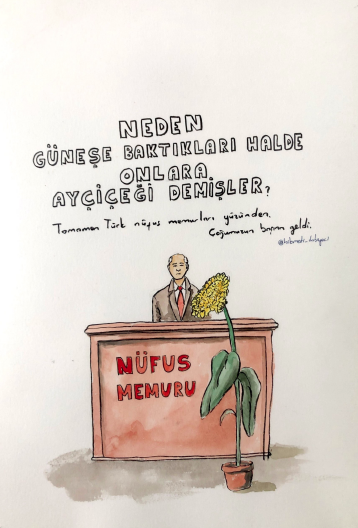 NEDEN
GÜNEŞE BAKTIKLARI HALDE
ONLARA
AYÇİÇEĞİ DEMİŞLER?
Tamamen Türk nüfus memurları yüzünden.
Çoğumuzun başına geldi.
NÜFUS
MEMURU